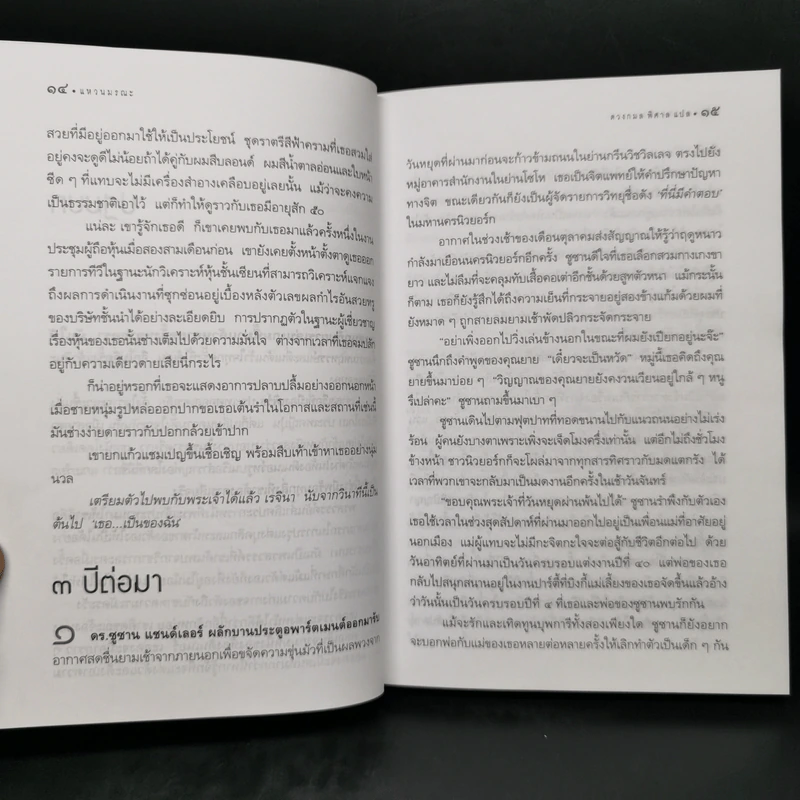 ๑๔ • แหวนมรณะ
สวยที่มีอยู่ออกมาใช้ให้เป็นประโยชน์ ชุดราตรีสีฟ้าครามที่เธอสวมใส่
อยู่คงจะดูดีไม่น้อยถ้าได้คู่กับผมสีบลอนด์ ผมสีน้ำตาลอ่อนและใบหน้า
ซีด ๆ ที่แทบจะไม่มีเครื่องสำอางเคลือบอยู่เลยนั้น แม้ว่าจะคงความ
เป็นธรรมชาติเอาไว้ แต่ก็ทำให้ดูราวกับเธอมีอายุสัก ๕๐
แน่ละ เขารู้จักเธอดี ก็เขาเคยพบกับเธอมาแล้วครั้งหนึ่งในงาน
ประชุมผู้ถือหุ้นเมื่อสองสามเดือนก่อน เขายังเคยตั้งหน้าตั้งตาดูเธอออก
รายการทีวีในฐานะนักวิเคราะห์หุ้นชั้นเซียนที่สามารถวิเคราะห์แจกแจง
ถึงผลการดำเนินงานที่ซุกซ่อนอยู่เบื้องหลังตัวเลขผลกำไรอันสวยหรู
ของบริษัทชั้นนำได้อย่างละเอียดยิบ การปรากฏตัวในฐานะผู้เชี่ยวชาญ
เรื่องหุ้นของเธอนั้นช่างเต็มไปด้วยความมั่นใจ ต่างจากเวลาที่เธอจมปลัก
อยู่กับความเดียวดายเสียนี่กระไร
ก็น่าอยู่หรอกที่เธอจะแสดงอาการปลาบปลื้มอย่างออกนอกหน้า
เมื่อชายหนุ่มรูปหล่อออกปากขอเธอเต้นรำในโอกาสและสถานที่เช่นนี้
มันช่างง่ายดายราวกับปอกกล้วยเข้าปาก
เขายกแก้วแชมเปญขึ้นเชื้อเชิญ พร้อมสืบเท้าเข้าหาเธออย่างนุ่ม
นวล
เตรียมตัวไปพบกับพระเจ้าได้แล้ว เรจินา นับจากวินาทีนี้เป็น
ต้นไป 'เธอ...เป็นของฉัน'
๓ ปีต่อมา
๑ ดร.ซูซาน แชนด์เลอร์ ผลักบานประตูอพาร์ตเมนต์ออกมารับ
อากาศสดชื่นยามเช้าจากภายนอกเพื่อขจัดความขุ่นมัวที่เป็นผลพวงจาก
ดวงกมล พิศาล แปล • ๑๕
วันหยุดที่ผ่านมาก่อนจะก้าวข้ามถนนในย่านกรีนวิชวิลเลจ ตรงไปยัง
หมู่อาคารสำนักงานในย่านโซโห เธอเป็นจิตแพทย์ให้คำปรึกษาปัญหา
ทางจิต ขณะเดียวกันก็ยังเป็นผู้จัดรายการวิทยุชื่อดัง 'ที่นี่มีคำตอบ'
ในมหานครนิวยอร์ก
อากาศในช่วงเช้าของเดือนตุลาคมส่งสัญญาณให้รู้ว่าฤดูหนาว
กำลังมาเยือนนิวยอร์กอีกครั้ง ซูซานดีใจที่เธอเลือกสวมกางเกงขา
ยาว และไม่ลืมที่จะคลุมทับเสื้อคอเต่าอีกชั้นด้วยสูทตัวหนา แม้กระนั้น
ก็ตาม เธอก็ยังรู้สึกได้ถึงความเย็นที่กระจายอยู่สองข้างแก้มด้วยผมที่
ยังหมาด ๆ ถูกสายลมยามเช้าพัดปลิวกระจัดกระจาย
"อย่าเพิ่งออกไปวิ่งเล่นข้างนอกในขณะที่ผมยังเปียกอยู่นะจ๊ะ"
ซูซานนึกถึงคำพูดของคุณยาย "เดี๋ยวจะเป็นหวัด" หมู่นี้เธอคิดถึงคุณ
ยายขึ้นมาบ่อย ๆ "วิญญาณของคุณยายยังคงวนเวียนอยู่ใกล้ ๆ หนู
รึเปล่าคะ" ซูซานถามขึ้นมาเบา ๆ
ซูซานเดินไปตามฟุตปาทที่ทอดขนานไปกับแนวถนนอย่างไม่เร่ง
ร้อน ผู้คนยังบางตาเพราะเพิ่งจะเจ็ดโมงครึ่งเท่านั้น แต่อีกไม่ถึงชั่วโมง
ข้างหน้า ชาวนิวยอร์กก็จะโผล่มาจากทุกสารทิศราวกับมดแตกรัง ได้
เวลาที่พวกเขาจะกลับมาเป็นมดงานอีกครั้งในเช้าวันจันทร์
"ขอบคุณพระเจ้าที่วันหยุดผ่านพ้นไปได้" ซูซานรำพึงกับตัวเอง
เธอใช้เวลาในช่วงสุดสัปดาห์ที่ผ่านมาออกไปอยู่เป็นเพื่อนแม่ที่อาศัยอยู่
นอกเมือง แม่ผู้แทบจะไม่มีกะจิตกะใจจะต่อสู้กับชีวิตอีกต่อไป ด้วย
วันอาทิตย์ที่ผ่านมาเป็นวันครบรอบแต่งงานปีที่ ๔๐ แต่พ่อของเธอ
กลับไปสนุกสนานอยู่ในงานปาร์ตี้ที่บิงกี้แม่เลี้ยงของเธอจัดขึ้นแล้วอ้าง
ว่าวันนั้นเป็นวันครบรอบปีที่ ๔ ที่เธอและพ่อของซูซานพบรักกัน
แม้จะรักและเทิดทูนบุพการีทั้งสองเพียงใด ซูซานก็ยังอยาก
จะบอกพ่อกับแม่ของเธอหลายต่อหลายครั้งให้เลิกทำตัวเป็นเด็ก ๆ กัน